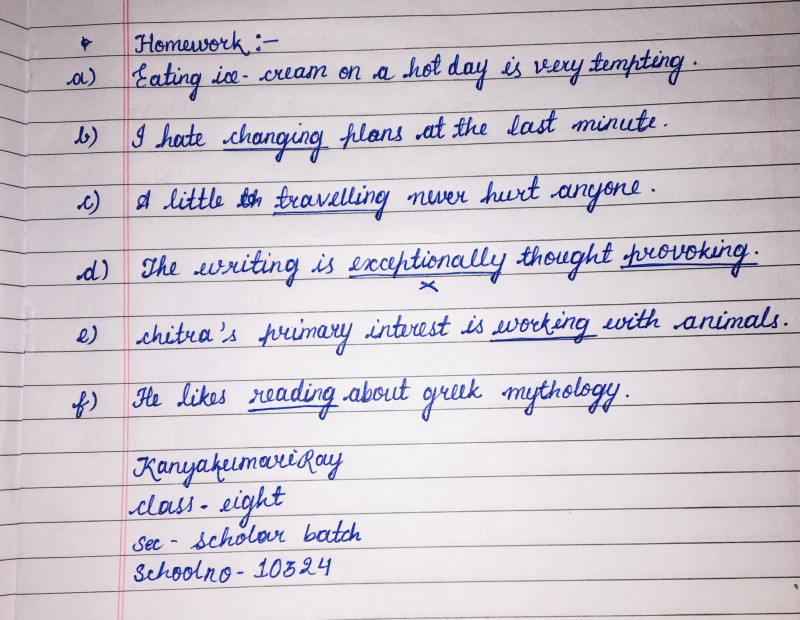 Homework :-
a) Eating ice-cream on a hot day is very tempting.
b) I hate changing plans at the last minute.
c) A little th travelling never hurt anyone.
d) The writing is exceptionally thought provoking.
×
e) chitra's primary interest is working with animals.
f) He likes reading about greek mythology.
Kanyakumari Ray
class - eight
sec - scholar batch
Schoolno - 10324